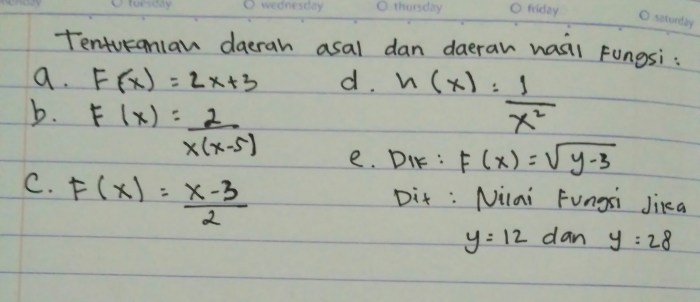 tuesday wednesday thursday friday saturday
Tentukanlah daerah asal dan daerah hasil Fungsi :
a. F(x) = 2x+3
b. F(x) = 2/x(x-5)
c. F(x) = x-3/2
d. h(x) : 1/x²
e. Dik : F(x) = √y-3
Dit : Nilai Fungsi Jika
y = 12 dan y : 28